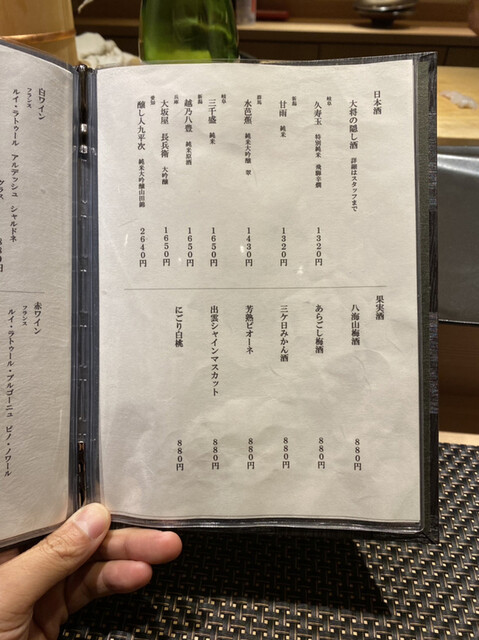 日本酒
大将の隠し酒 詳細はスタッフまで
岐阜
久寿玉 特別純米 飛騨辛撰 1320円
新潟
甘雨 純米 1320円
群馬
水芭蕉 純米大吟醸 翠 1430円
岐阜
三千盛 純米 1650円
新潟
越乃八豊 純米原酒 1650円
兵庫
大坂屋 長兵衛 大吟醸 1650円
愛知
醸し人九平次 純米大吟醸山田錦 2640円
果実酒
八海山梅酒 880円
あらごし梅酒 880円
三ケ日みかん酒 880円
芳熟ピオーネ 880円
出雲シャインマスカット 880円
にごり白桃 880円
白ワイン
フランス
ルイ・ラトゥール アルデッシュ シャルドネ
グラス
赤ワイン
フランス
ルイ・ラトゥール・ブルゴーニュ ピノ・ノワール